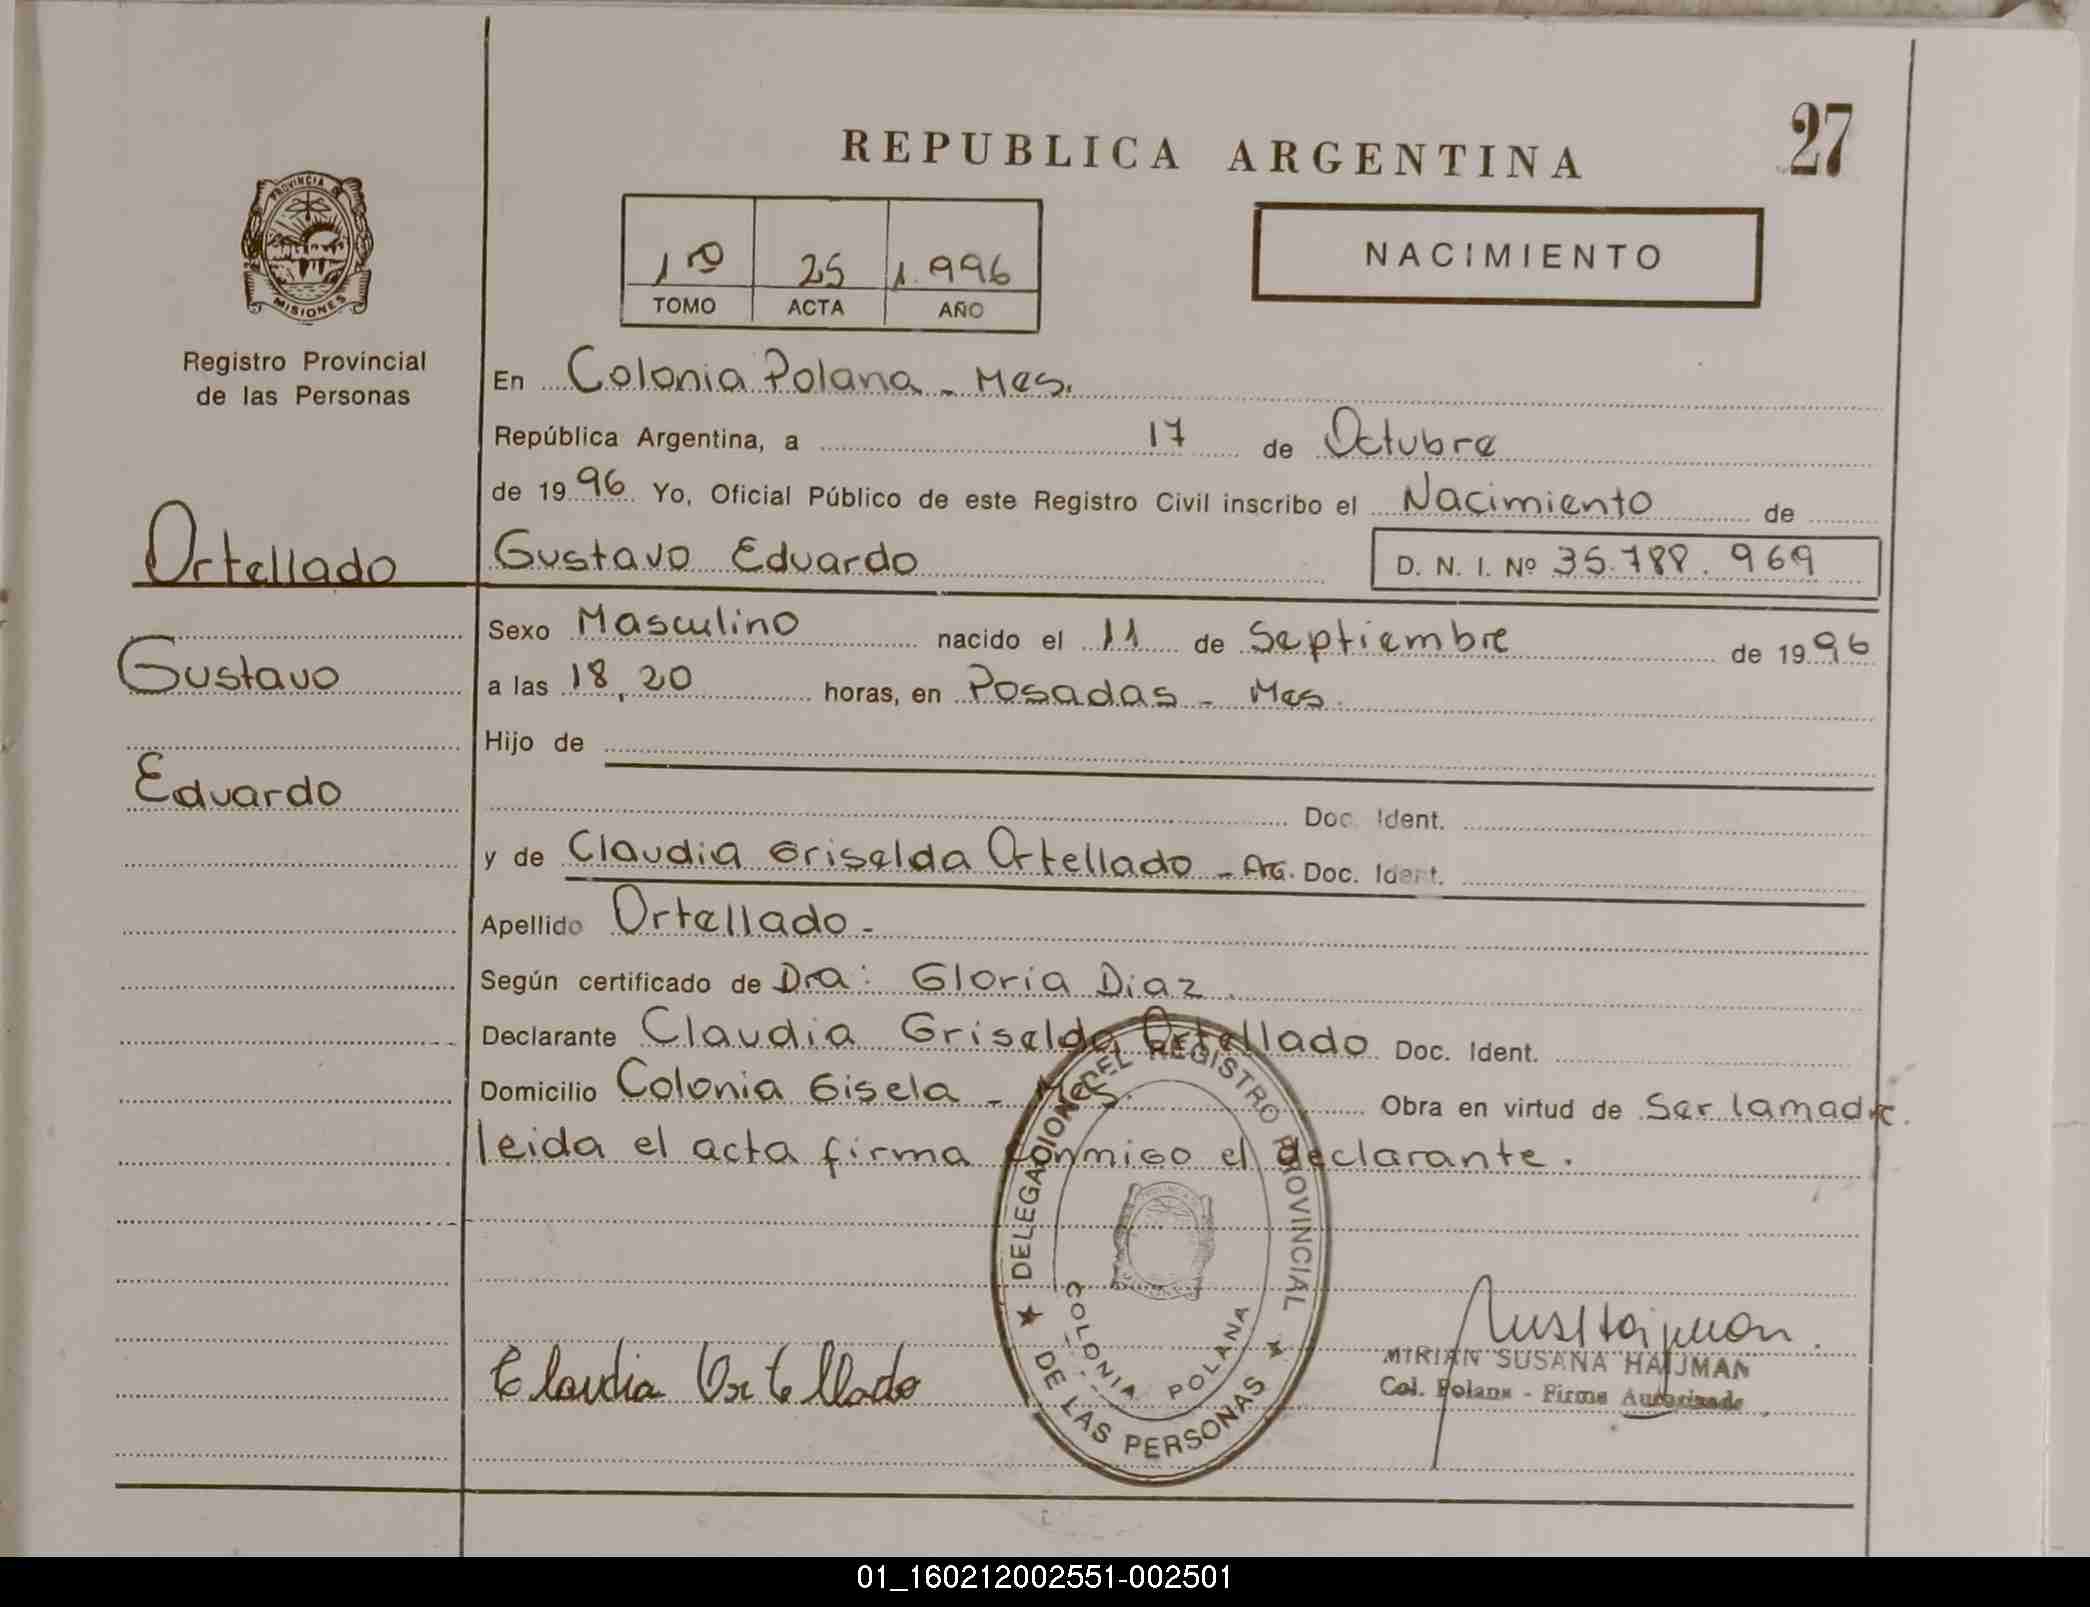 REPUBLICA ARGENTINA
27
PROVINCIA DE
MISIONES
Registro Provincial
de las Personas
1º 25 1.996
TOMO ACTA AÑO
NACIMIENTO
En Colonia Polana - Mes.
República Argentina, a 17 de Octubre
de 1996 Yo, Oficial Público de este Registro Civil inscribo el Nacimiento de
Ortellado
Gustavo Eduardo
D. N. I. Nº 35.788.969
Sexo Masculino nacido el 11 de Septiembre de 1996
Gustavo
a las 18,20 horas, en Posadas - Mes.
Hijo de
Eduardo
Doc. Ident.
y de Claudia Griselda Ortellado - ARG. Doc. Ident.
Apellido Ortellado -
Según certificado de Dra: Gloria Diaz
Declarante Claudia Griselda Ortellado Doc. Ident.
Domicilio Colonia Gisela - Mes. Obra en virtud de Ser la madre.
leida el acta firma conmigo el declarante.
DELEGACION DEL REGISTRO PROVINCIAL
DE LAS PERSONAS
COLONIA POLANA
Claudia Ortellado
MIRIAN SUSANA HAUMAN
Col. Polana - Firma Autorizada
01_160212002551-002501